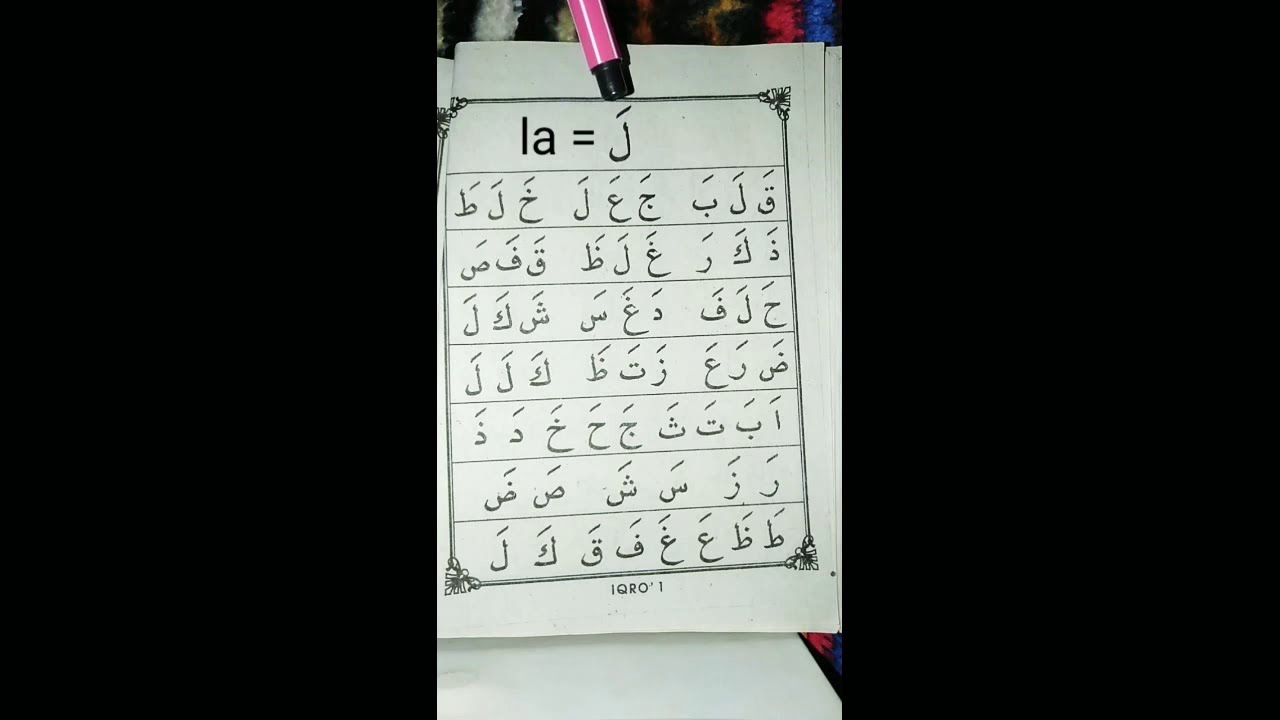 la = لَ
قَ لَ بَ جَ عَ لَ خَ لَ طَ
ذَ كَ رَ غَ لَ ظَ قَ فَ صَ
حَ لَ فَ دَ غَ سَ شَ كَ لَ
ضَ رَ عَ زَ تَ ظَ كَ لَ لَ
اَ بَ تَ ثَ جَ حَ خَ دَ ذَ
رَ زَ سَ شَ صَ ضَ
طَ ظَ عَ غَ فَ قَ كَ لَ
IQRO' 1